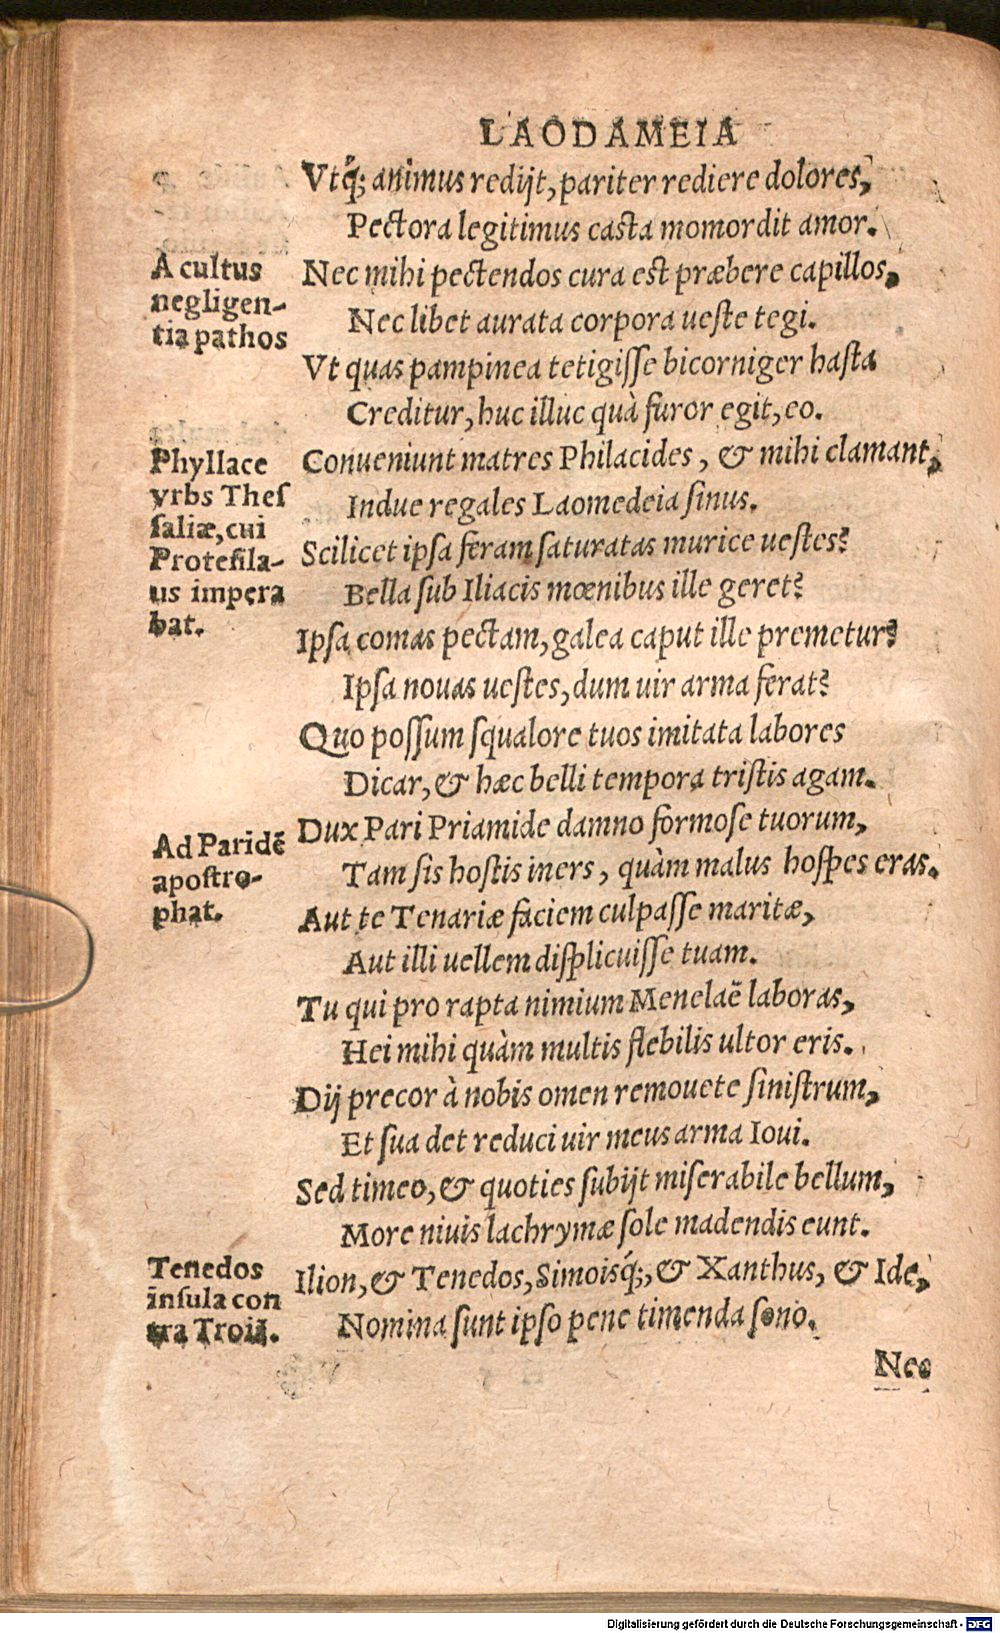 LAODAMEIA
Vtq́; animus redijt, pariter rediere dolores,
Pectora legitimus casta momordit amor.
A cultus
negligen-
tia pathos
Nec mihi pectendos cura est præbere capillos,
Nec libet aurata corpora ueſte tegi.
Vt quas pampinea tetigiſſe bicorniger haſta
Creditur, huc illuc quà furor egit, eo.
Phyllace
vrbs Theſ
ſaliæ, cui
Proteſila-
us impera
bat.
Conueniunt matres Philacides, & mihi clamant,
Indue regales Laomedeia ſinus.
Scilicet ipſa feram ſaturatas murice ueſtes?
Bella ſub Iliacis mœnibus ille geret?
Ipſa comas pectam, galea caput ille premetur?
Ipſa nouas ueſtes, dum uir arma ferat?
Quo poſſum ſqualore tuos imitata labores
Dicar, & hæc belli tempora triſtis agam.
Ad Paridē
apoſtro-
phat.
Dux Pari Priamide damno formoſe tuorum,
Tam ſis hoſtis iners, quàm malus hoſpes eras.
Aut te Tenariæ faciem culpaſſe maritæ,
Aut illi uellem diſplicuiſſe tuam.
Tu qui pro rapta nimium Menelaë laboras,
Hei mihi quàm multis flebilis ultor eris.
Dij precor à nobis omen remouete ſiniſtrum,
Et ſua det reduci uir meus arma Ioui.
Sed timeo, & quoties ſubijt miſerabile bellum,
More niuis lachrymæ ſole madendis eunt.
Tenedos
inſula con
tra Troiā.
Ilion, & Tenedos, Simoisq́;, & Xanthus, & Ide,
Nomina ſunt ipſo pene timenda ſono.
Nec
Digitalisierung gefördert durch die Deutsche Forschungsgemeinschaft - DFG